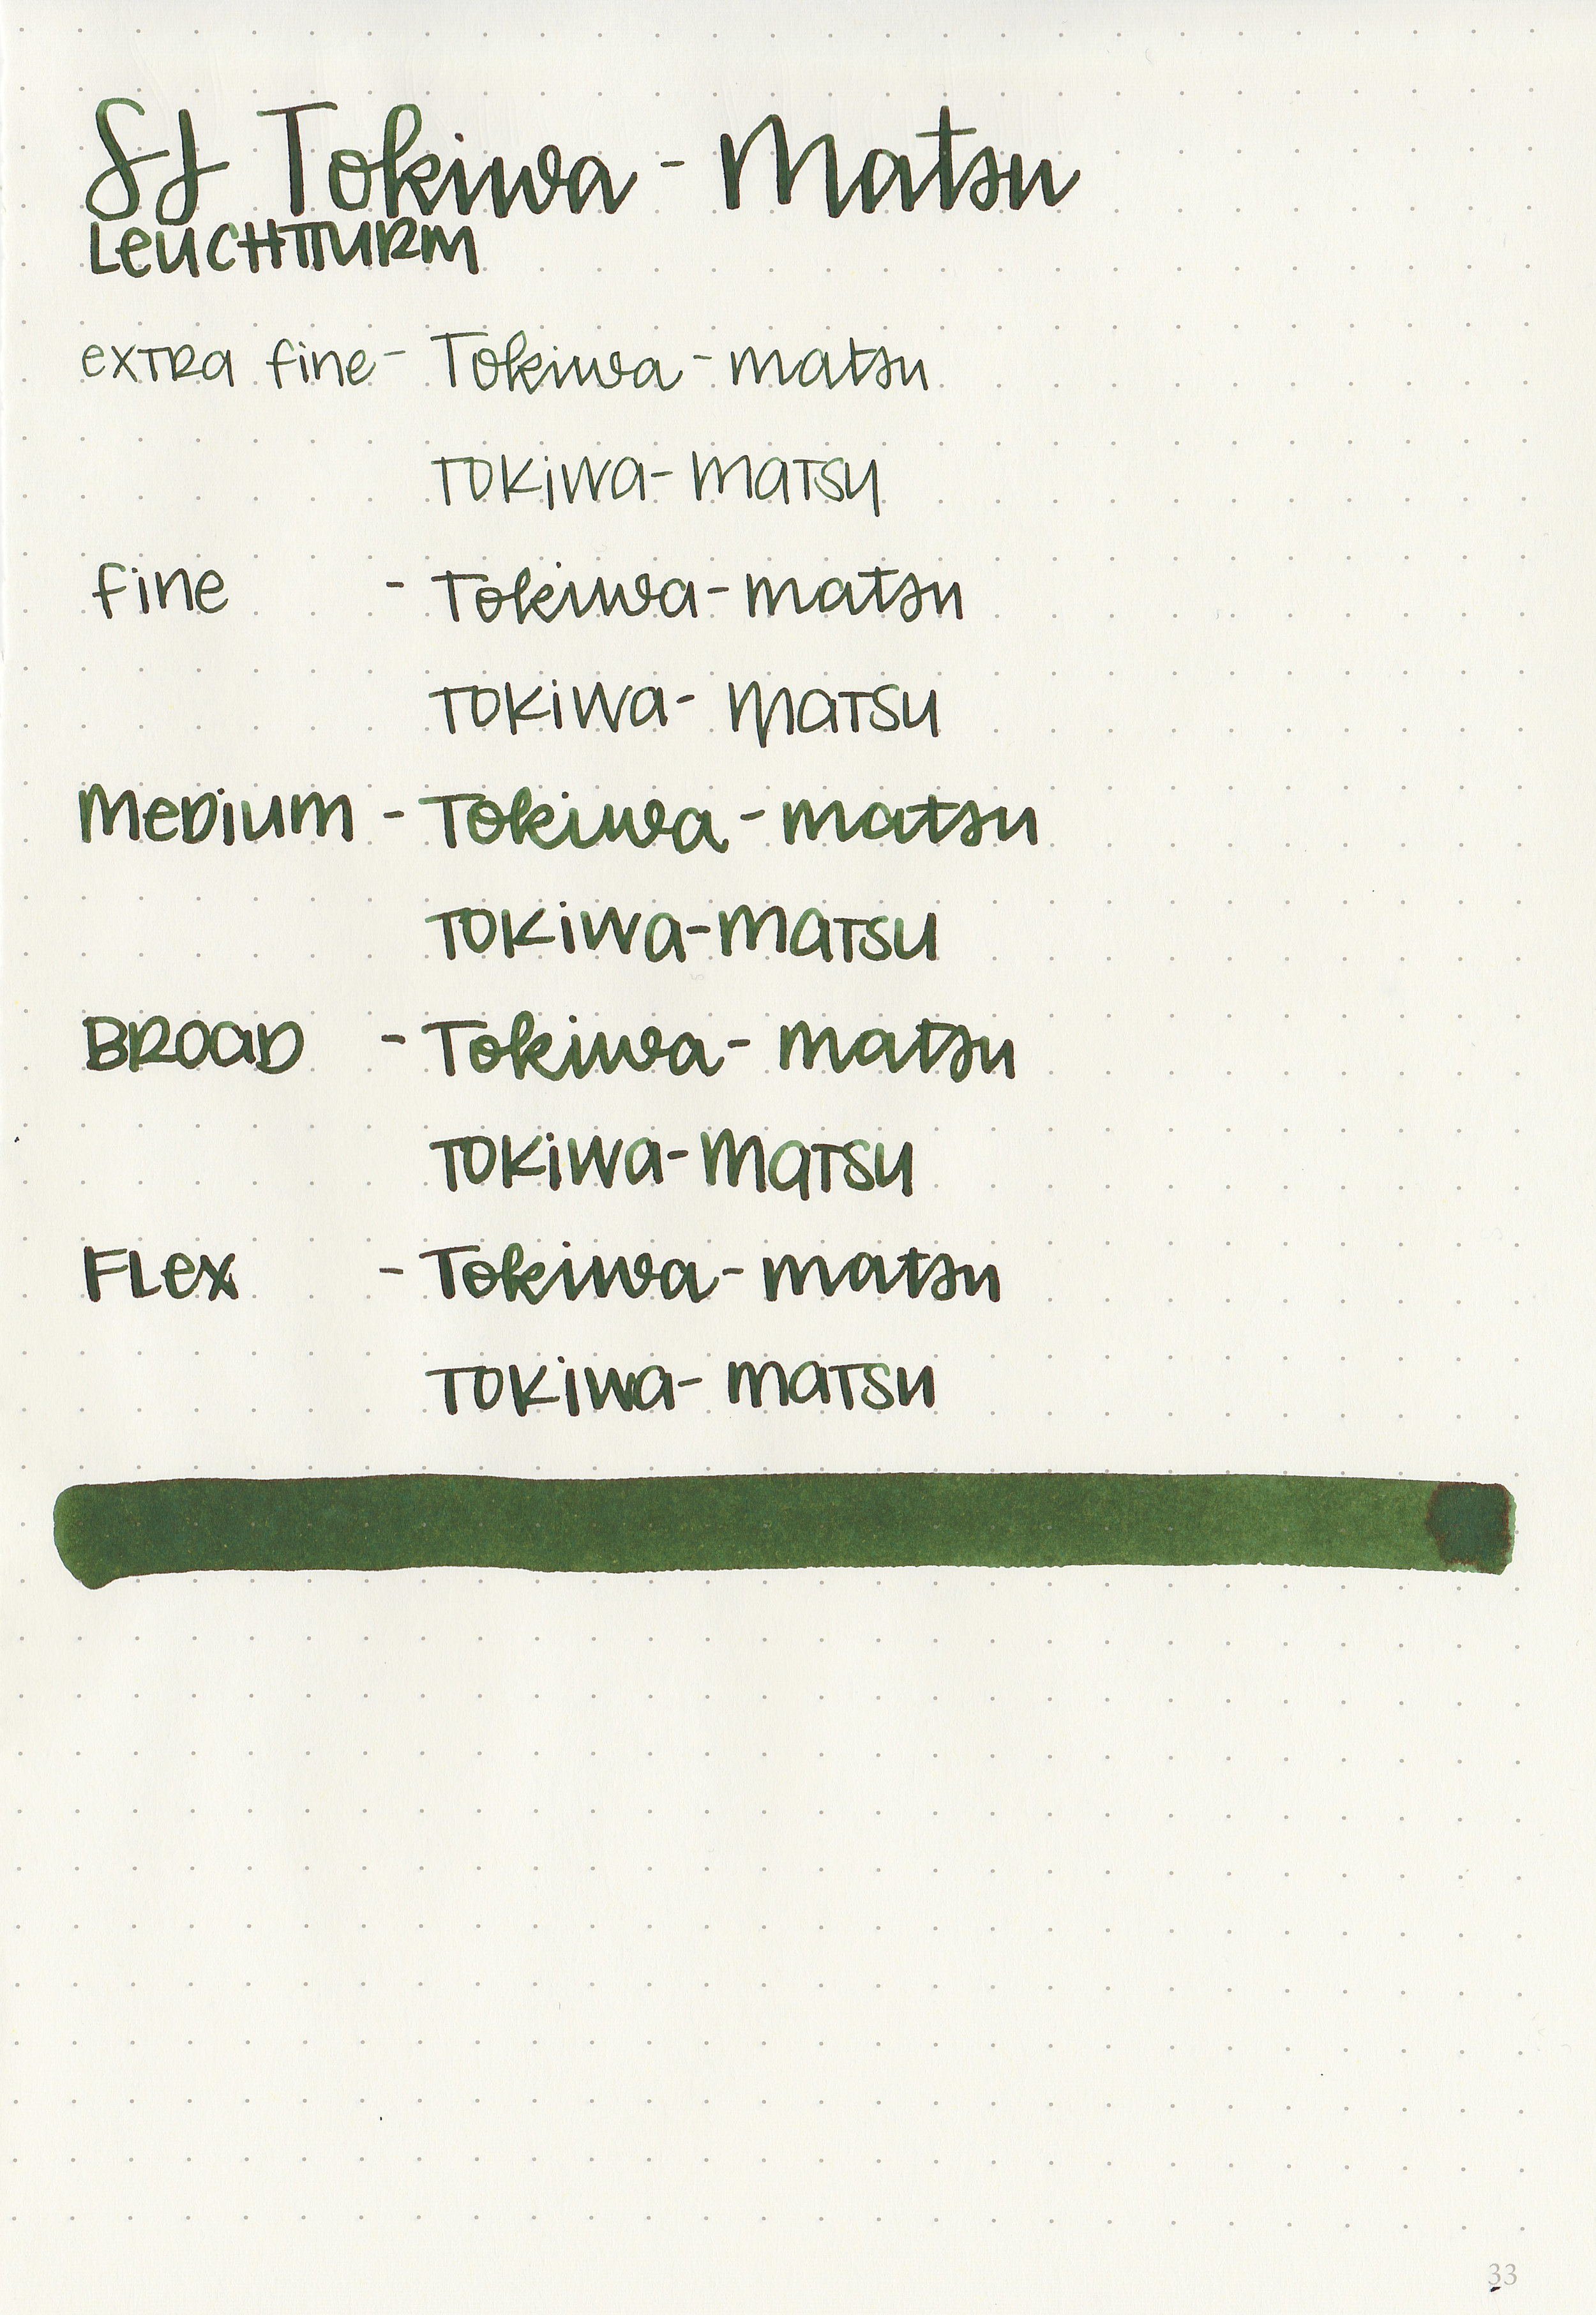 SJ Tokiwa-Matsu
LEUCHTTURM
extra fine - Tokiwa-matsu
Tokiwa-matsu
fine - Tokiwa-matsu
Tokiwa-matsu
Medium - Tokiwa-matsu
Tokiwa-matsu
Broad - Tokiwa-matsu
Tokiwa-matsu
Flex - Tokiwa-matsu
Tokiwa-matsu
33